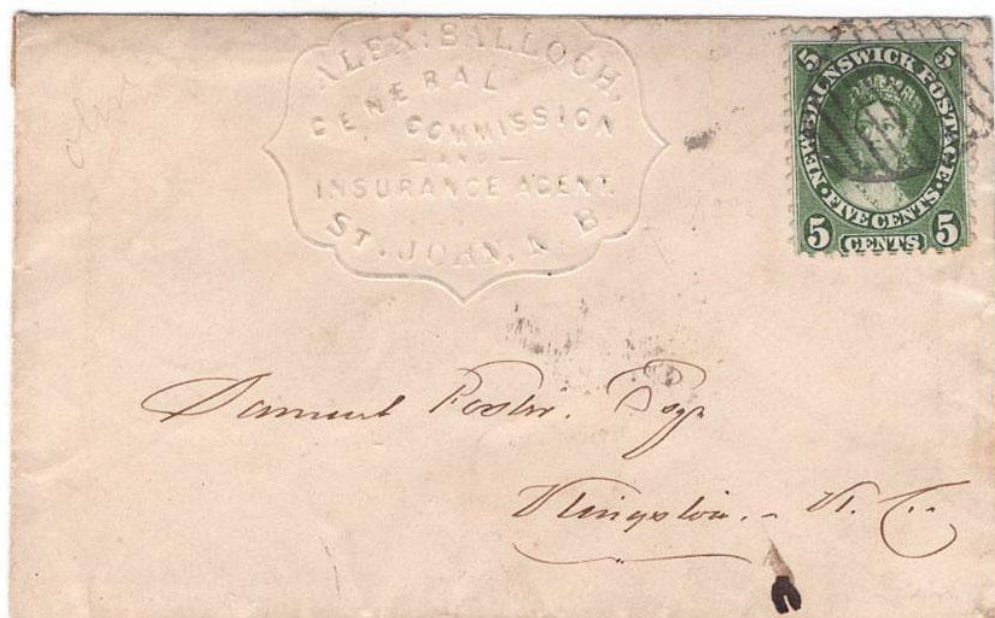 ALEX: BALLOCH,
GENERAL
COMMISSION
— AND —
INSURANCE AGENT.
ST. JOHN, N. B.
5 5
NEW BRUNSWICK POSTAGE
FIVE CENTS
5 CENTS 5
Samuel Foster. Esqr
Kingston. - K. C..